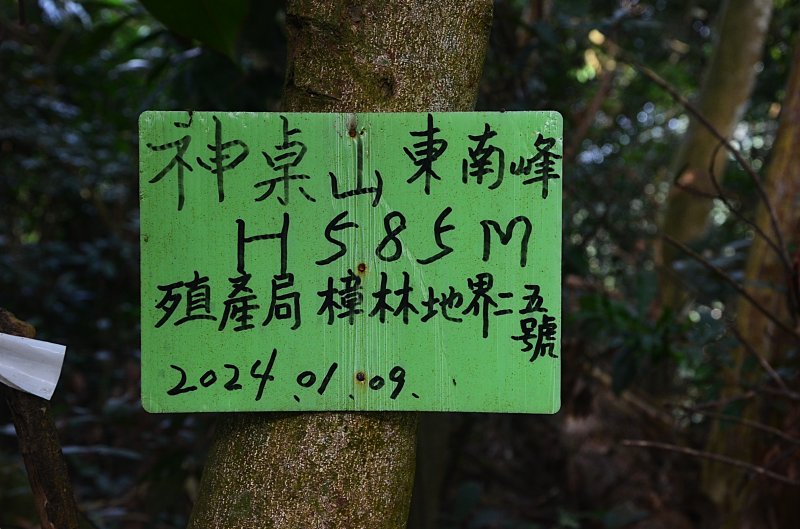 神桌山東南峰
H585M
殖產局樟林地界二五號
2024.01.09.